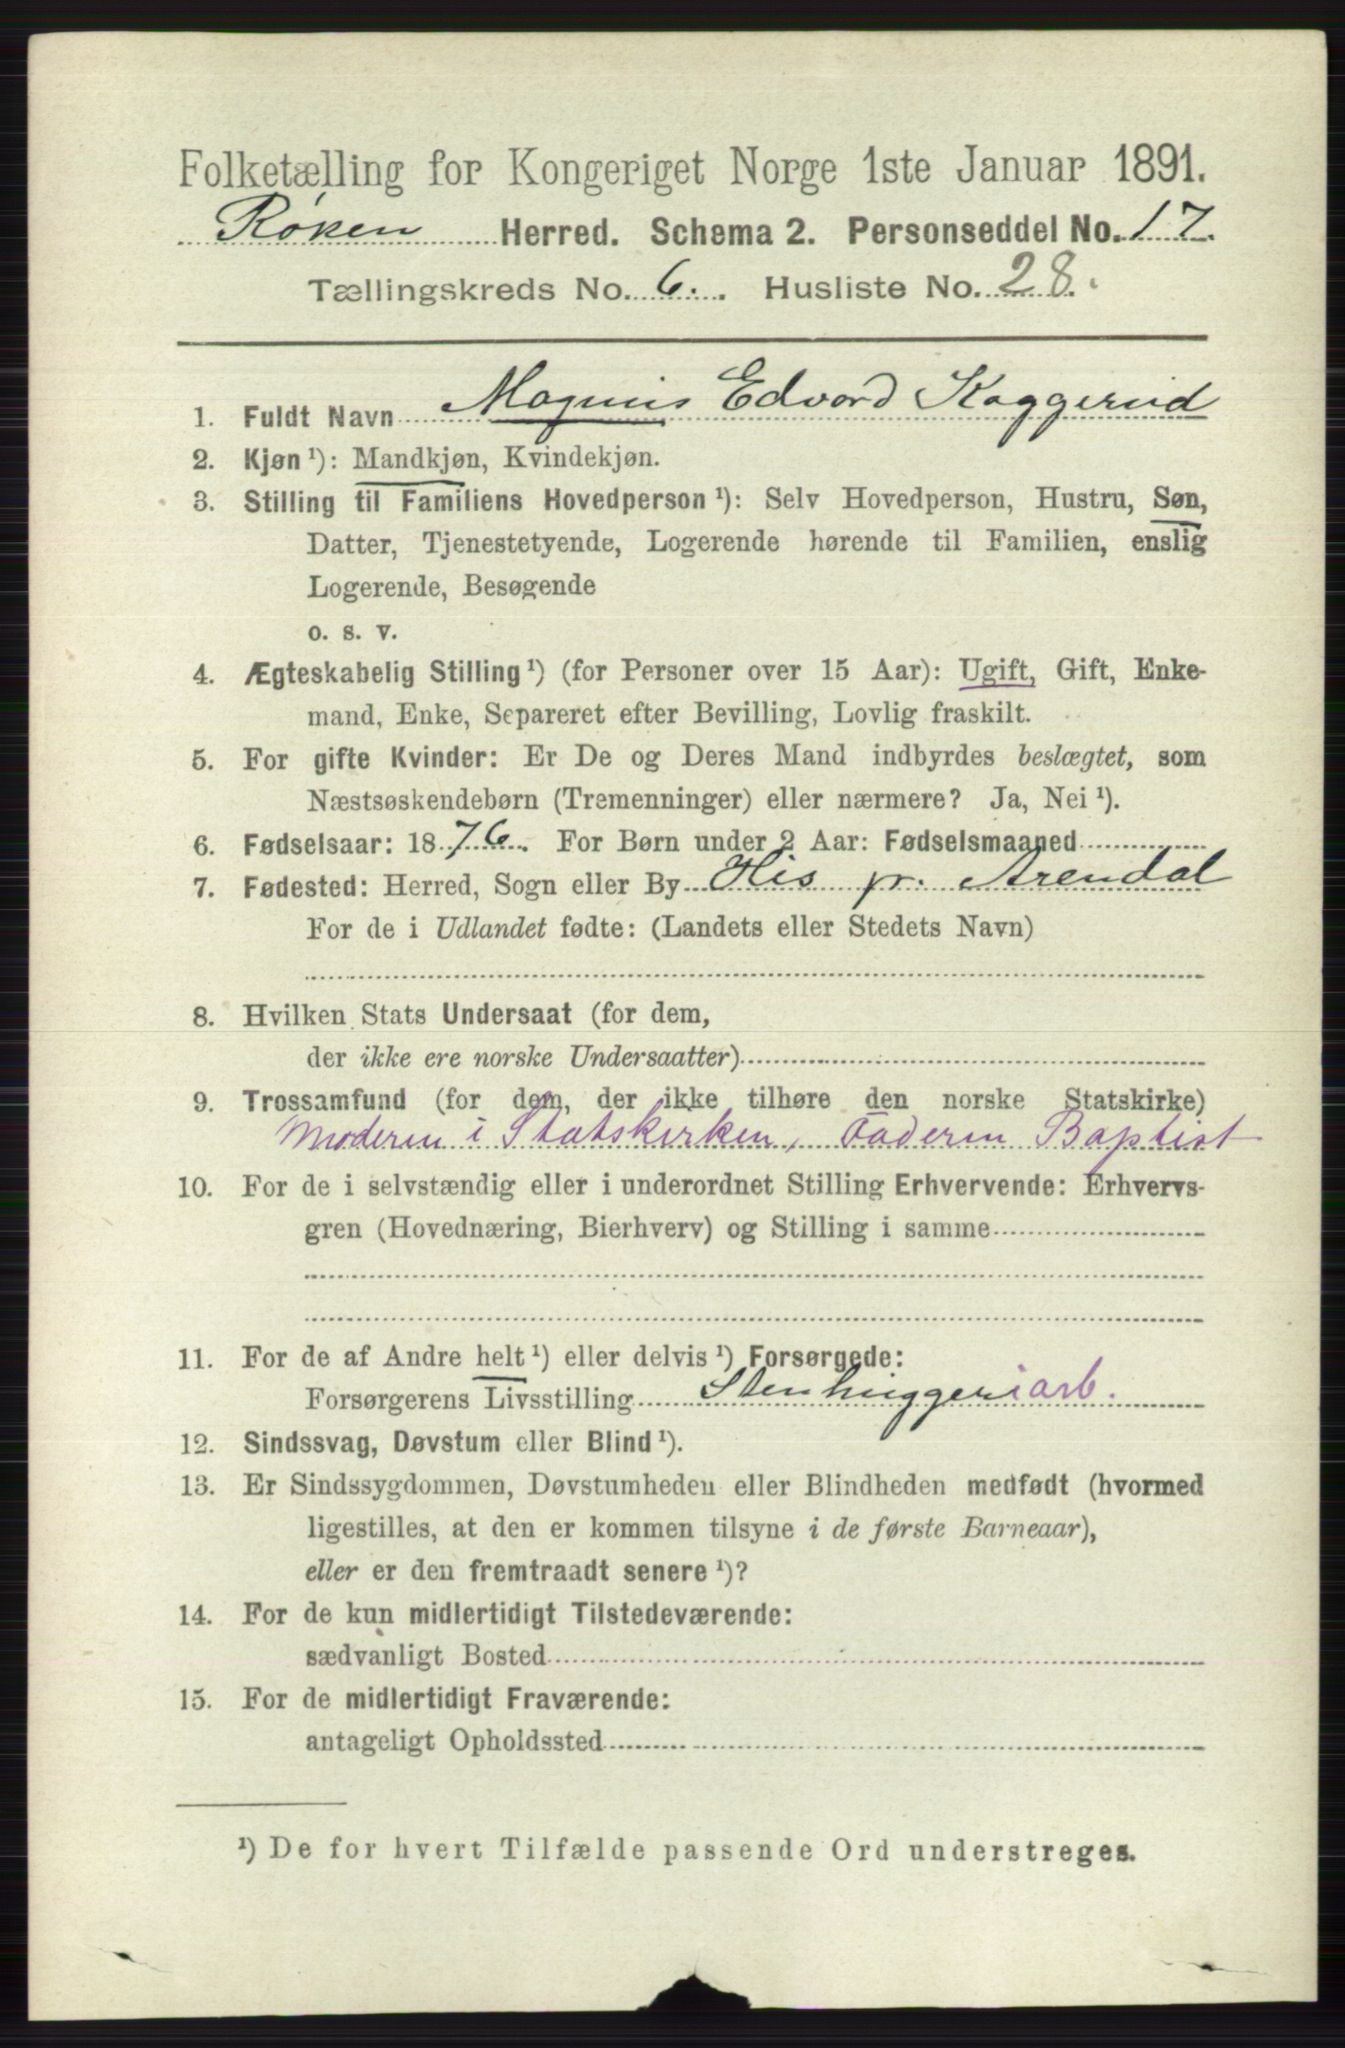 Folketælling for Kongeriget Norge 1ste Januar 1891.
Røken Herred. Schema 2. Personseddel No. 17.
Tællingskreds No. 6. Husliste No. 28.
1. Fuldt Navn Magnus Edvard Kaggerud
2. Kjøn ¹): Mandkjøn, Kvindekjøn.
3. Stilling til Familiens Hovedperson ¹): Selv Hovedperson, Hustru, Søn,
Datter, Tjenestetyende, Logerende hørende til Familien, enslig
Logerende, Besøgende
o. s. v.
4. Ægteskabelig Stilling ¹) (for Personer over 15 Aar): Ugift, Gift, Enke-
mand, Enke, Separeret efter Bevilling, Lovlig fraskilt.
5. For gifte Kvinder: Er De og Deres Mand indbyrdes beslægtet, som
Næstsøskendebørn (Tremenninger) eller nærmere? Ja, Nei ¹).
6. Fødselsaar: 1876. For Børn under 2 Aar: Fødselsmaaned
7. Fødested: Herred, Sogn eller By His pr. Arendal
For de i Udlandet fødte: (Landets eller Stedets Navn)
8. Hvilken Stats Undersaat (for dem,
der ikke ere norske Undersaatter)
9. Trossamfund (for dem, der ikke tilhøre den norske Statskirke)
Moderen i Statskirken, Faderen Baptist
10. For de i selvstændig eller i underordnet Stilling Erhvervende: Erhvervs-
gren (Hovednæring, Bierhverv) og Stilling i samme
11. For de af Andre helt ¹) eller delvis ¹) Forsørgede:
Forsørgerens Livsstilling Stenhuggeriarb.
12. Sindssvag, Døvstum eller Blind ¹).
13. Er Sindssygdommen, Døvstumheden eller Blindheden medfødt (hvormed
ligestilles, at den er kommen tilsyne i de første Barneaar),
eller er den fremtraadt senere ¹)?
14. For de kun midlertidigt Tilstedeværende:
sædvanligt Bosted
15. For de midlertidigt Fraværende:
antageligt Opholdssted
¹) De for hvert Tilfælde passende Ord understreges.